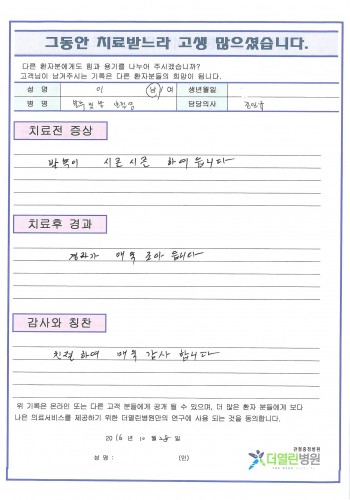 그동안 치료받느라 고생 많으셨습니다.
다른 환자분에게도 힘과 용기를 나누어 주시겠습니까?
고객님이 남겨주시는 기록은 다른 환자분들의 희망이 됩니다.
성 명 이 남/여 생년월일
병 명 및 발 담당의사
치료전 증상
발목이 시큰시큰 하여읍니다
치료후 경과
결과가 매우 조아읍니다
감사와 칭찬
친절하여 매우 감사합니다
위 기록은 온라인 또는 다른 고객 분들에게 공개 될 수 있으며, 더 많은 환자 분들에게 보다
나은 의료서비스를 제공하기 위한 더열린병원만의 연구에 사용 되는 것을 동의합니다.
2016년 10월 28일
성명 : (인)
관절중점병원
더열린병원